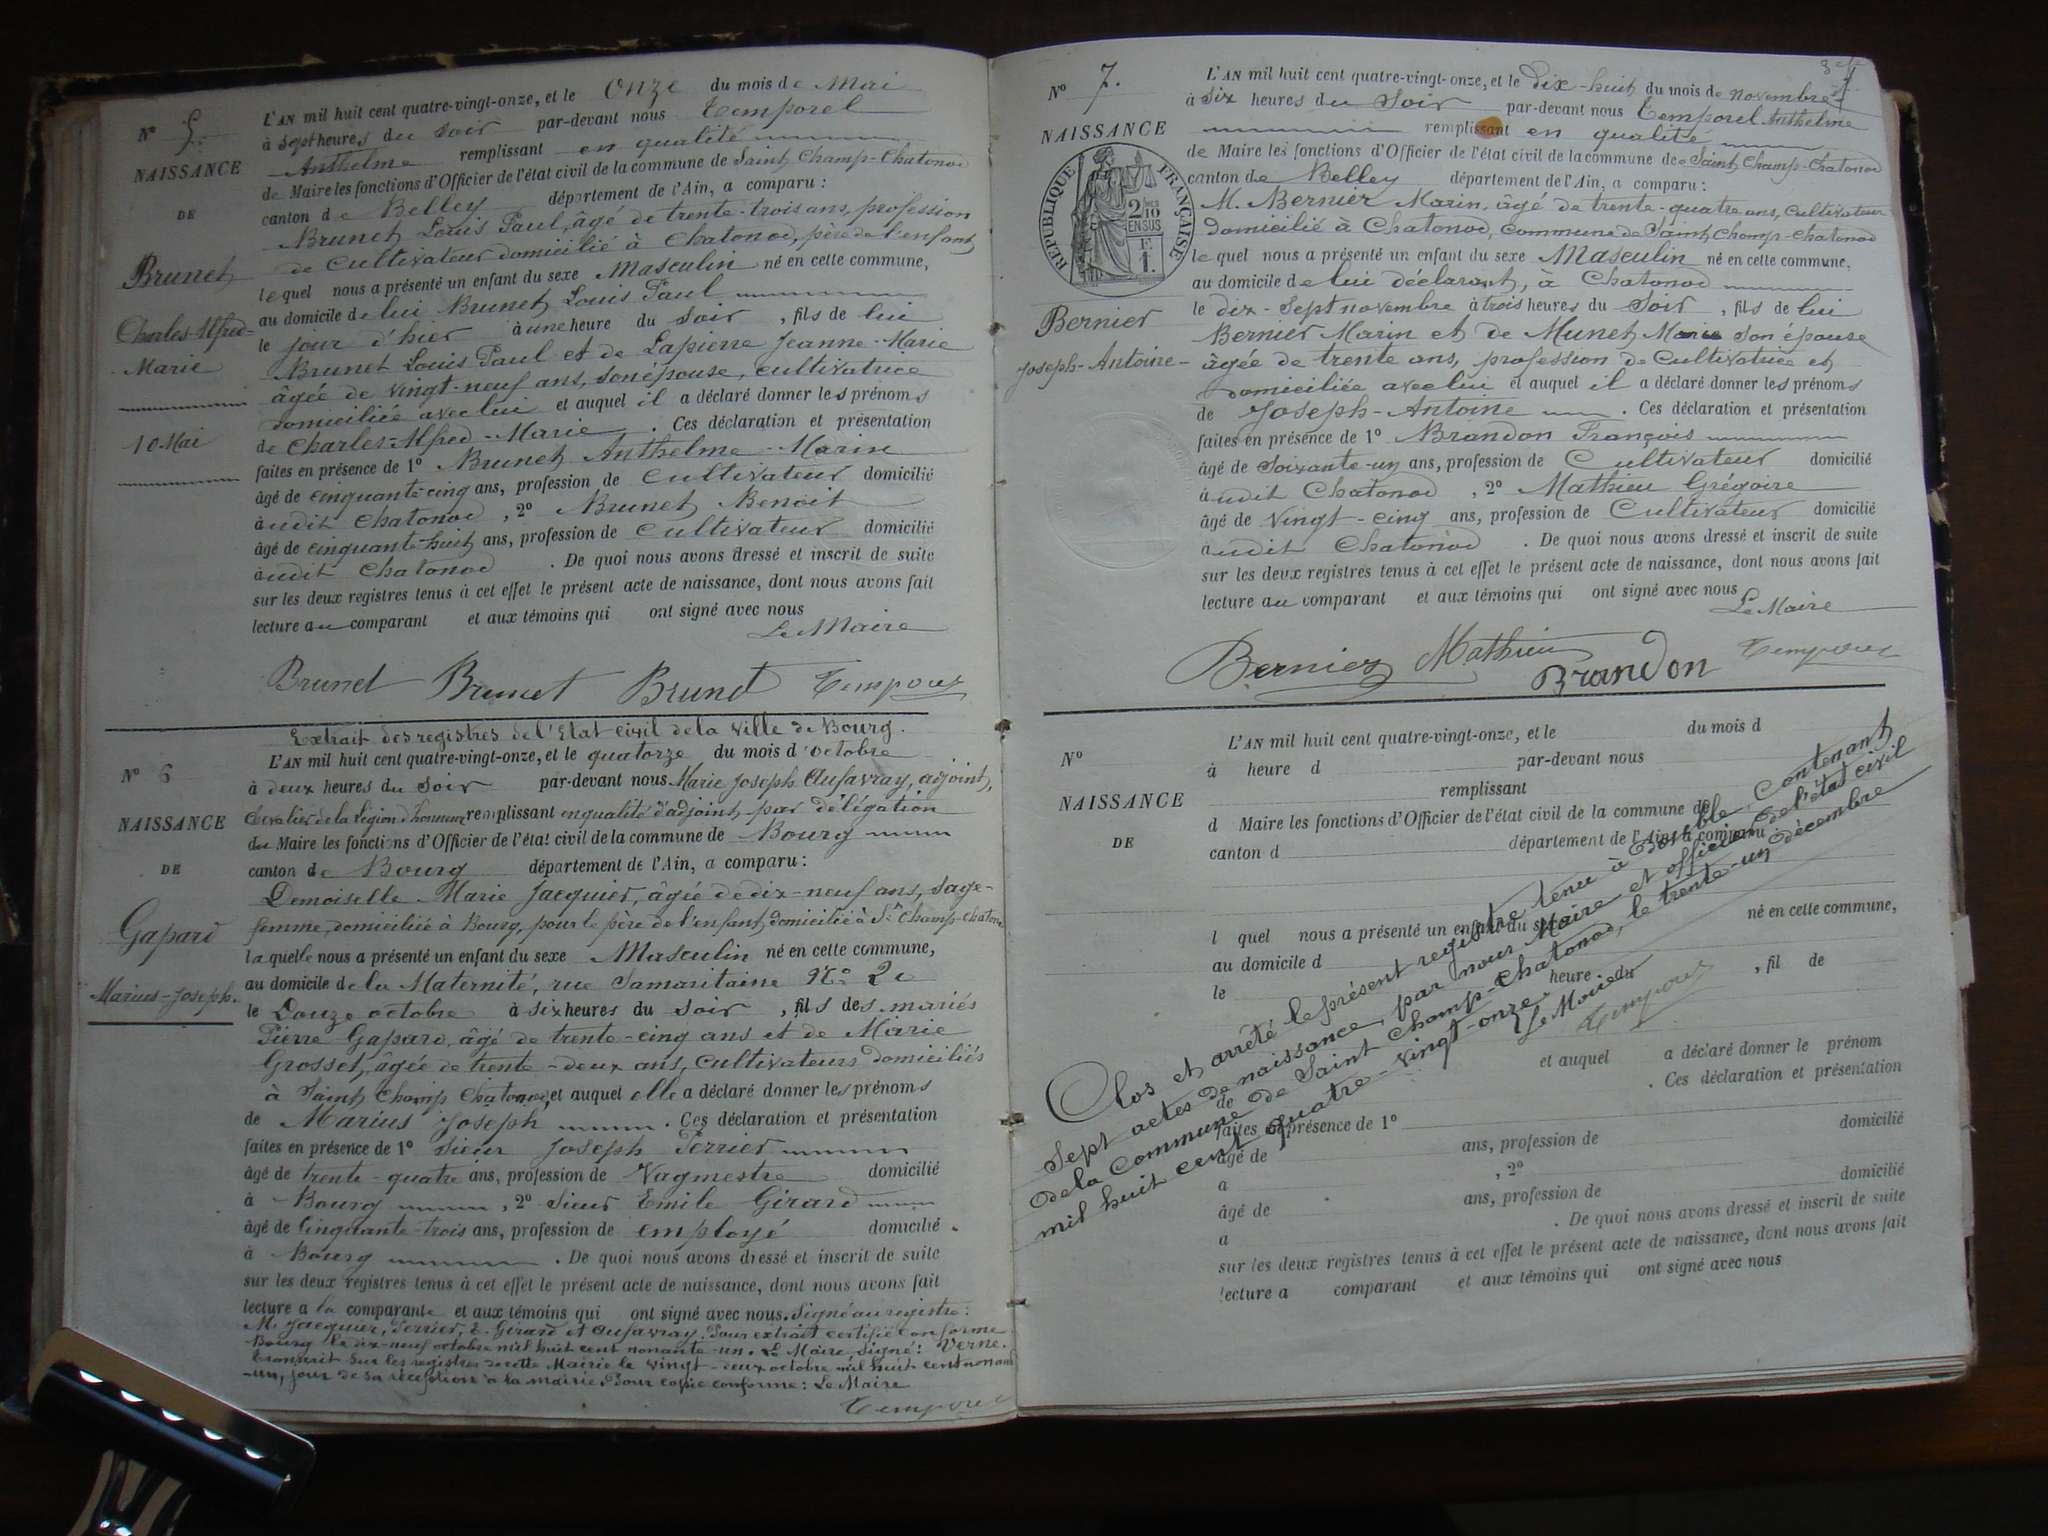 N° 5.
NAISSANCE
DE
Brunet
Charles-Alfred-
Marie
10 Mai
L'AN mil huit cent quatre-vingt-onze, et le onze du mois de Mai
à sept heures du soir par-devant nous Temporel
Anthelme remplissant en qualité
de Maire les fonctions d'Officier de l'état civil de la commune de Saint Champ-Chatonod
canton de Belley département de l'Ain, a comparu :
Brunet Louis Paul, âgé de trente-trois ans, profession
de cultivateur domicilié à Chatonod, père de l'enfant
lequel nous a présenté un enfant du sexe Masculin né en cette commune,
au domicile de lui Brunet Louis Paul
le jour d'hier à une heure du soir, fils de lui
Brunet Louis Paul et de Lapierre Jeanne-Marie
âgée de vingt-neuf ans, son épouse, cultivatrice
domiciliée avec lui et auquel il a déclaré donner les prénoms
de Charles-Alfred-Marie. Ces déclaration et présentation
faites en présence de 1° Brunet Anthelme-Marin
âgé de cinquante-cinq ans, profession de cultivateur domicilié
audit Chatonod, 2° Brunet Benoit
âgé de cinquante-huit ans, profession de cultivateur domicilié
audit Chatonod. De quoi nous avons dressé et inscrit de suite
sur les deux registres tenus à cet effet le présent acte de naissance, dont nous avons fait
lecture au comparant et aux témoins qui ont signé avec nous
Le Maire
Brunet Brunet Brunet Temporel
Extrait des registres de l'Etat civil de la Ville de Bourg.
N° 6
NAISSANCE
DE
Gapard
Marius-Joseph.
L'AN mil huit cent quatre-vingt-onze, et le quatorze du mois d'octobre
à deux heures du soir par-devant nous Marie Joseph Aufavray, adjoint,
Chevalier de la Légion d'honneur remplissant en qualité d'adjoint, par délégation
du Maire les fonctions d'Officier de l'état civil de la commune de Bourg
canton de Bourg département de l'Ain, a comparu :
Demoiselle Marie Jacquier, âgée de dix-neuf ans, sage-
femme, domiciliée à Bourg, pour le père de l'enfant domicilié à St Champ-Chatonod
laquelle nous a présenté un enfant du sexe Masculin né en cette commune,
au domicile de la Maternité, rue Samaritaine N°
le Douze octobre à six heures du soir, fils des mariés
Pierre Gapard, âgé de trente-cinq ans et de Marie
Grosset, âgée de trente-deux ans, cultivateurs domiciliés
à Saint Champ Chatonod, et auquel elle a déclaré donner les prénoms
de Marius Joseph. Ces déclaration et présentation
faites en présence de 1° Sieur Joseph Perrier
âgé de trente-quatre ans, profession de Vagmestre domicilié
à Bourg, 2° Sieur Emile Girard
âgé de Cinquante-trois ans, profession de employé domicilié
à Bourg. De quoi nous avons dressé et inscrit de suite
sur les deux registres tenus à cet effet le présent acte de naissance, dont nous avons fait
lecture a la comparante et aux témoins qui ont signé avec nous. Signé au registre :
M. Jacquier, Perrier, E. Girard et Aufavray. Pour extrait certifié conforme
Bourg le dix-neuf octobre mil huit cent nonante-un. Le Maire Signé : Verne.
Transcrit sur les registres de cette Mairie le vingt-deux octobre mil huit cent nonante
-un, jour de sa réception à la mairie. Pour copie conforme : Le Maire
Temporel
N° 7.
NAISSANCE
RÉPUBLIQUE FRANÇAISE
2/10
EN SUS
F.
1.
Bernier
Joseph-Antoine-
L'AN mil huit cent quatre-vingt-onze, et le Dix-huit du mois de novembre
à six heures du soir par-devant nous Temporel Anthelme
remplissant en qualité
de Maire les fonctions d'Officier de l'état civil de la commune de Saint Champ-Chatonod
canton de Belley département de l'Ain, a comparu :
M. Bernier Marin, âgé de trente-quatre ans, cultivateur
domicilié à Chatonod, commune de Saint Champ-Chatonod
lequel nous a présenté un enfant du sexe Masculin né en cette commune,
au domicile de lui déclarant, à Chatonod
le dix-sept novembre à trois heures du soir, fils de lui
Bernier Marin et de Munet Marie son épouse
âgée de trente ans, profession de cultivatrice et
domiciliée avec lui et auquel il a déclaré donner les prénoms
de Joseph-Antoine. Ces déclaration et présentation
faites en présence de 1° Brandon François
âgé de soixante-un ans, profession de Cultivateur domicilié
audit Chatonod, 2° Mathieu Grégoire
âgé de vingt-cinq ans, profession de Cultivateur domicilié
audit Chatonod. De quoi nous avons dressé et inscrit de suite
sur les deux registres tenus à cet effet le présent acte de naissance, dont nous avons fait
lecture au comparant et aux témoins qui ont signé avec nous
Le Maire
Bernier Mathieu Brandon Temporel
N°
NAISSANCE
DE
L'AN mil huit cent quatre-vingt-onze, et le du mois d
à heure d par-devant nous
remplissant
d Maire les fonctions d'Officier de l'état civil de la commune de
canton d département de l'Ain, a comparu :
l quel nous a présenté un enfant du sexe né en cette commune,
au domicile d
le heure du , fil de
et auquel a déclaré donner le prénom
de . Ces déclaration et présentation
faites en présence de 1°
âgé de ans, profession de domicilié
a , 2°
âgé de ans, profession de domicilié
a . De quoi nous avons dressé et inscrit de suite
sur les deux registres tenus à cet effet le présent acte de naissance, dont nous avons fait
lecture a comparant et aux témoins qui ont signé avec nous
Clos et arrêté le présent registre tenu à double, contenant
sept actes de naissance, par nous Maire et officier de l'état civil
de la commune de Saint Champ-Chatonod, le trente-un décembre
mil huit cent quatre-vingt-onze.
Le Maire
Temporel